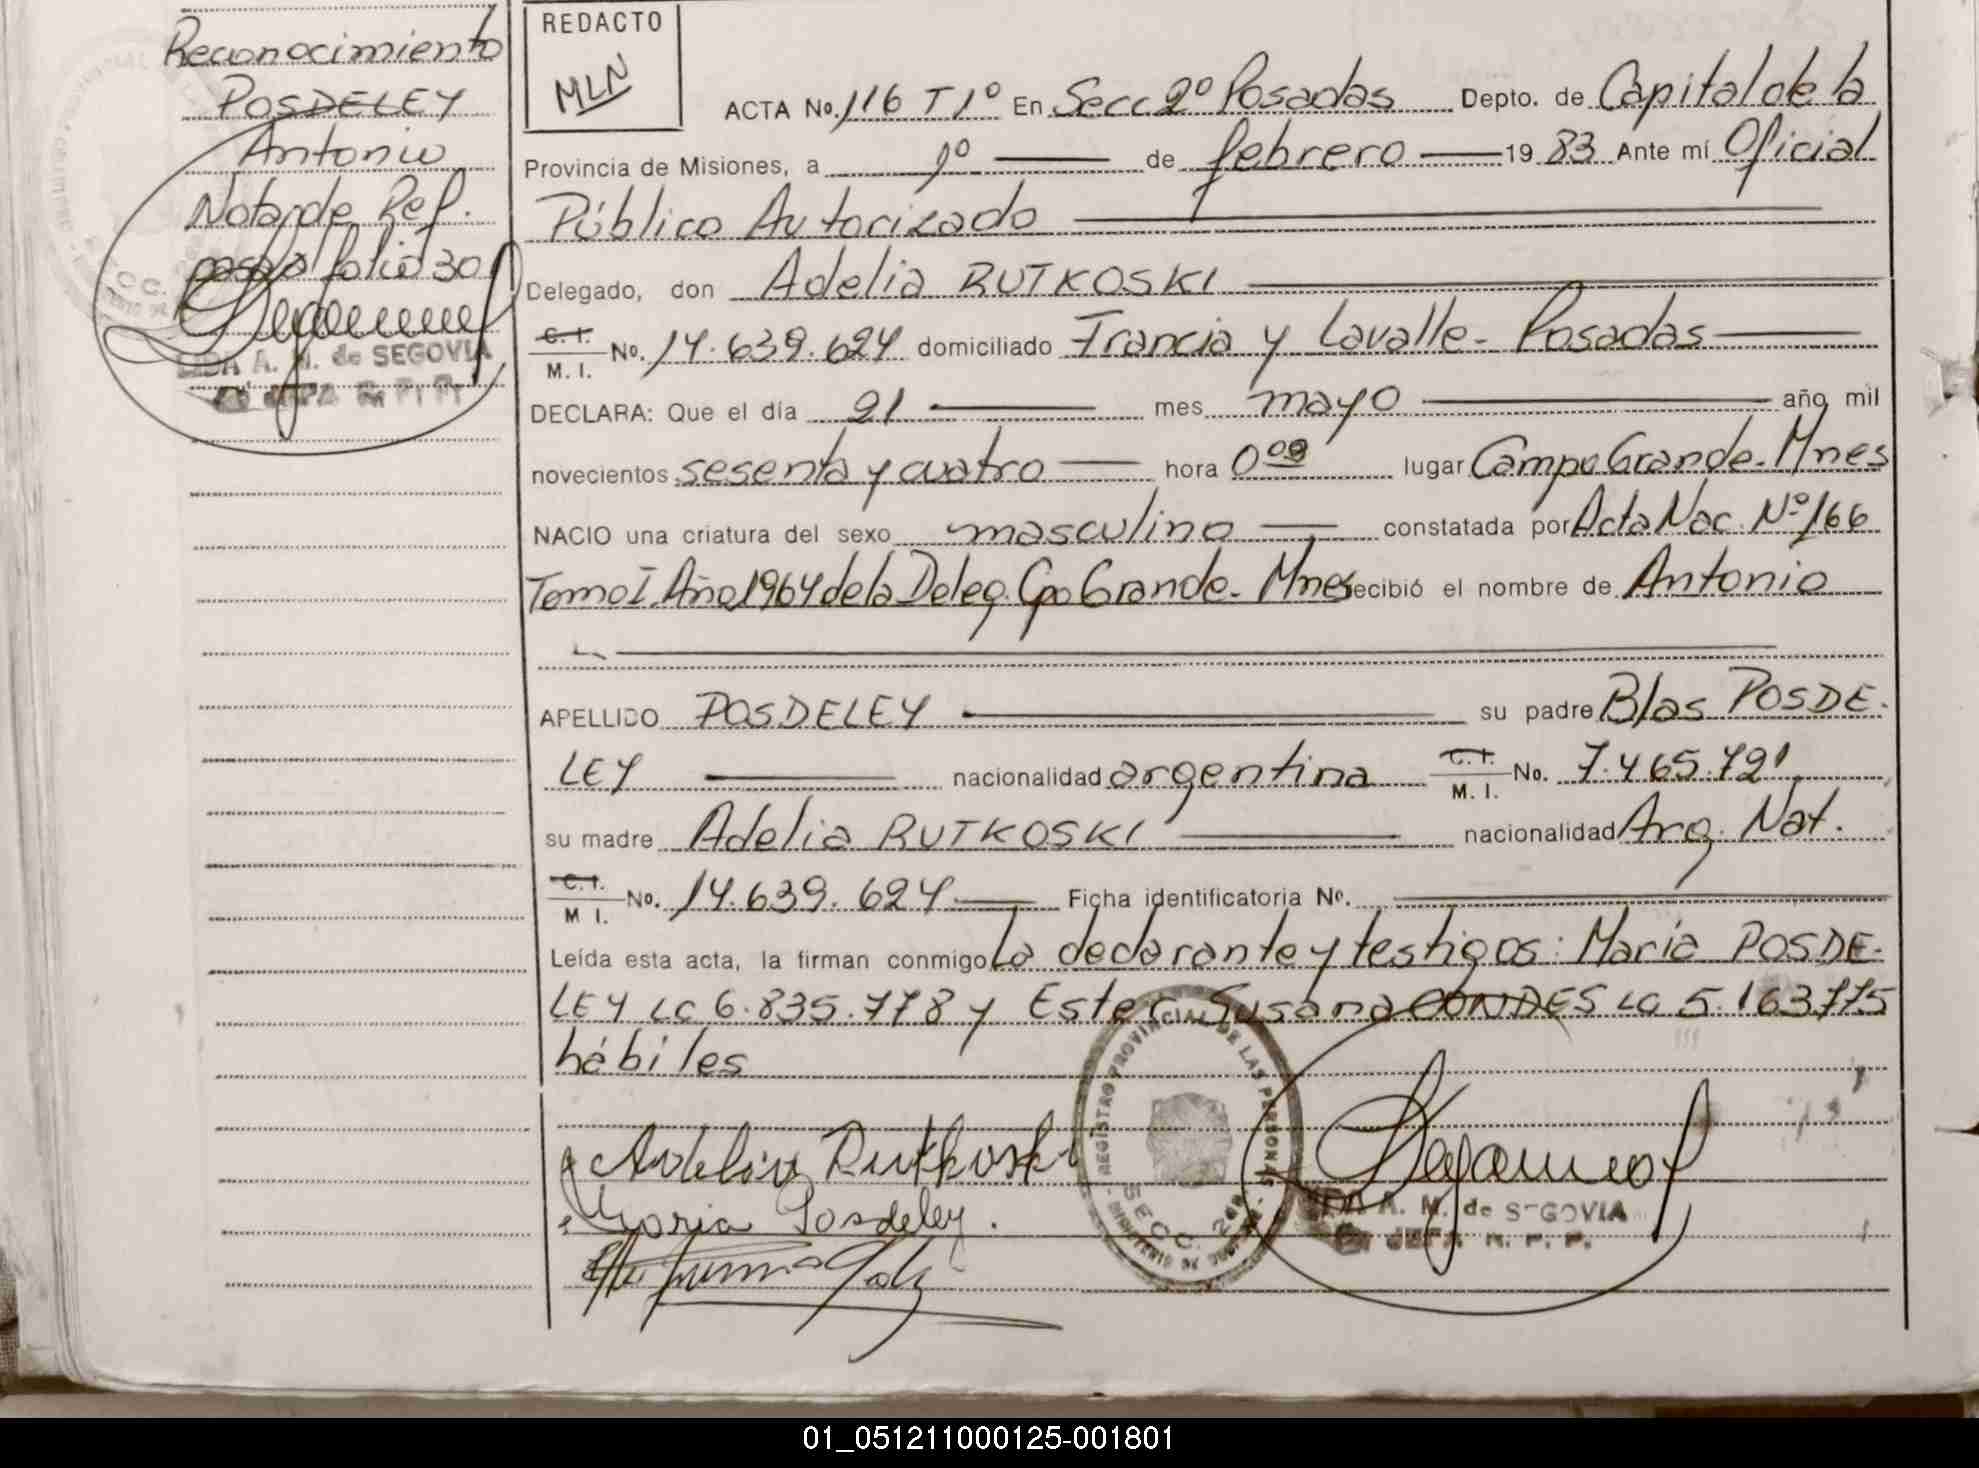 Reconocimiento
POSDELEY
Antonio
Nota de Ref.
pasa a folio 30
LIDA A. M. de SEGOVIA
JEFA R. P. P.
REDACTO
MLN
ACTA No. 116 T 1º En Secc 2º Posadas Depto. de Capital de la
Provincia de Misiones, a 1º de febrero 19 83 Ante mí Oficial
Público Autorizado
Delegado, don Adelia RUTKOSKI
C. I. M. I. No. 14.639.624 domiciliado Francia y Lavalle - Posadas
DECLARA: Que el día 21 mes mayo año mil
novecientos sesenta y cuatro hora 0 lugar Campo Grande - Mnes
NACIO una criatura del sexo masculino constatada por Acta Nac. Nº 166
Tomo I Año 1964 de la Deleg. Cpo Grande - Mnes recibió el nombre de Antonio
APELLIDO POSDELEY su padre Blas POSDE-
LEY nacionalidad argentina C. I. M. I. No. 7.465.721
su madre Adelia RUTKOSKI nacionalidad Arg. Nat.
C. I. M I. No. 14.639.624 Ficha identificatoria No.
Leída esta acta, la firman conmigo La declarante y testigos: María POSDE-
LEY LC 6.835.778 y Ester Susana CONDES LC 5.163.775
hábiles
Adelia Rutkoski
Maria Posdeley.
REGISTRO PROVINCIAL DE LAS PERSONAS
SECC. 2da
A. M. de SEGOVIA
JEFA R. P. P.
01_051211000125-001801